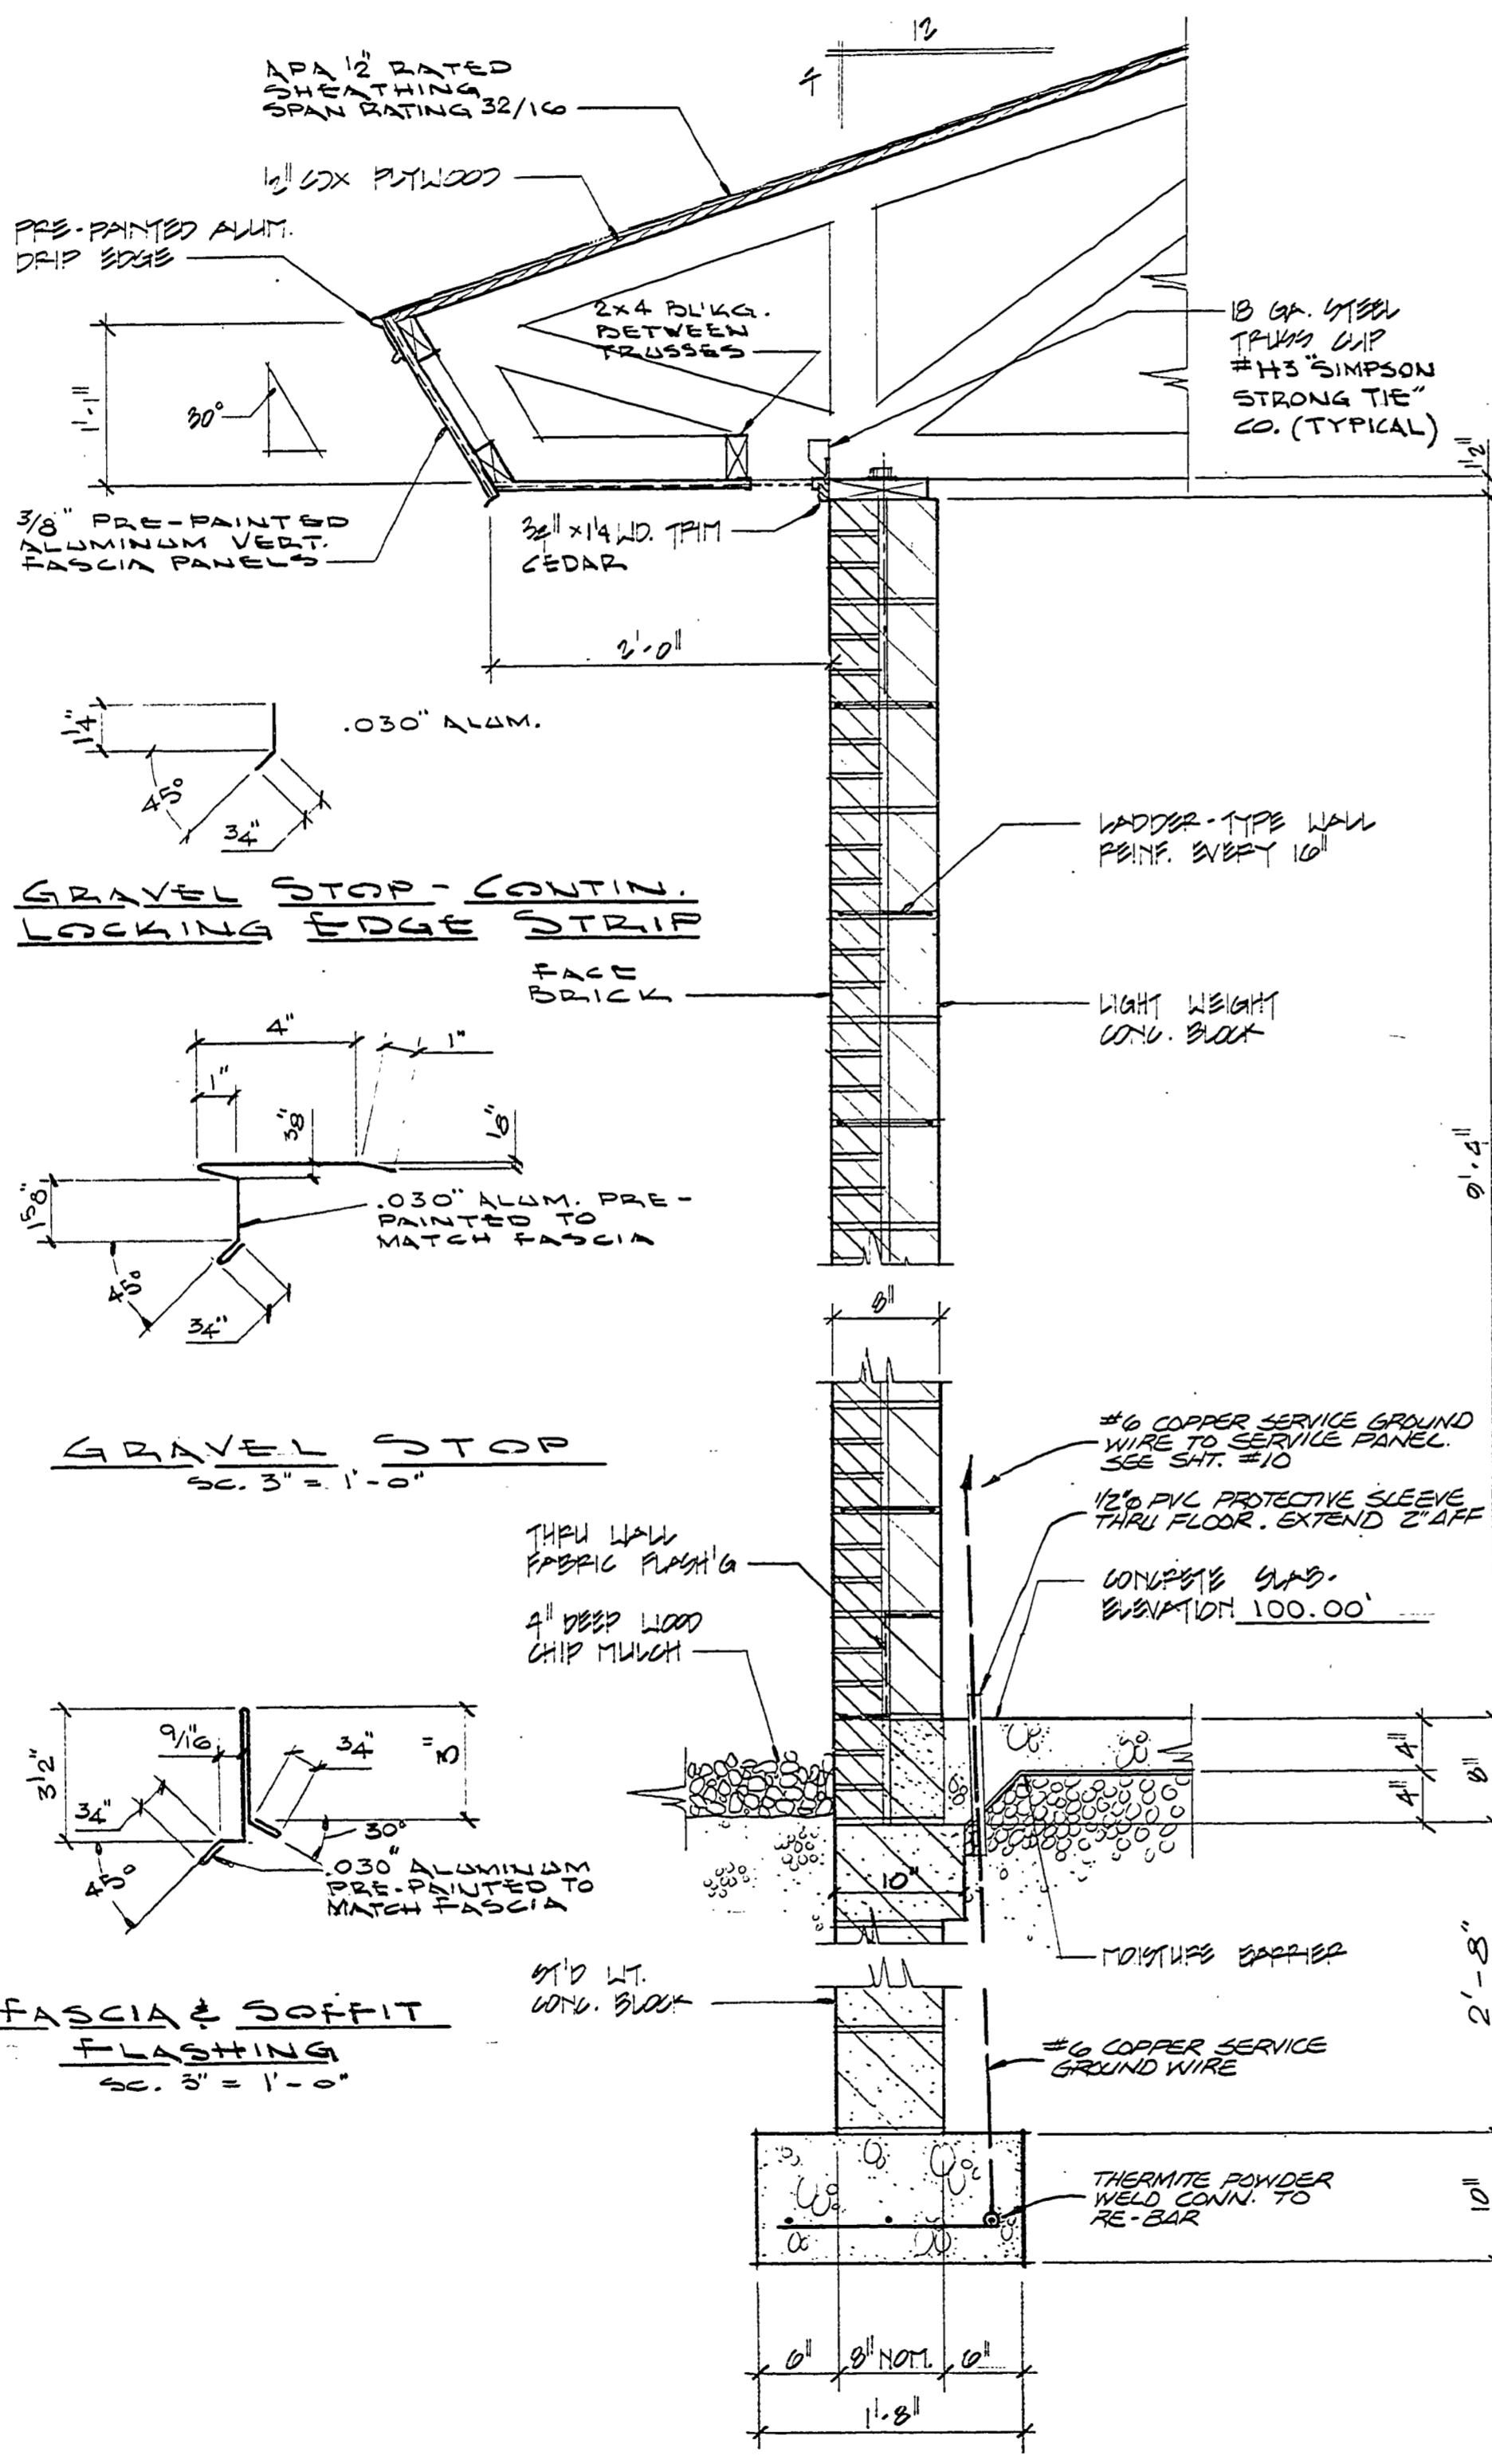 12
4
APA 1/2" RATED
SHEATHING
SPAN RATING 32/16
1/2" CDX PLYWOOD
PRE-PAINTED ALUM.
DRIP EDGE
2x4 BL'KG.
BETWEEN
TRUSSES
18 GA. STEEL
TRUSS CLIP
#H3 "SIMPSON
STRONG TIE"
CO. (TYPICAL)
1'-1"
30°
1 1/2"
3/8" PRE-PAINTED
ALUMINUM VERT.
FASCIA PANELS
3/4" x 1 1/4 WD. TRIM
CEDAR
2'-0"
1 1/4"
.030" ALUM.
45°
3/4"
GRAVEL STOP - CONTIN.
LOCKING EDGE STRIP
LADDER-TYPE WALL
REINF. EVERY 16"
FACE
BRICK
LIGHT WEIGHT
CONC. BLOCK
4"
1"
1"
3/8"
1/8"
1 5/8"
.030" ALUM. PRE-
PAINTED TO
MATCH FASCIA
45°
3/4"
9'-4"
8"
GRAVEL STOP
SC. 3" = 1'-0"
#6 COPPER SERVICE GROUND
WIRE TO SERVICE PANEL.
SEE SHT. #10
1/2"ø PVC PROTECTIVE SLEEVE
THRU FLOOR. EXTEND 2" AFF
THRU WALL
FABRIC FLASH'G
CONCRETE SLAB-
ELEVATION 100.00'
4" DEEP WOOD
CHIP MULCH
3 1/2"
9/16
3/4"
3"
3/4"
30°
45°
.030" ALUMINUM
PRE-PAINTED TO
MATCH FASCIA
4"
4"
8"
10"
MOISTURE BARRIER
2'-8"
ST'D WT.
CONC. BLOCK
FASCIA & SOFFIT
FLASHING
SC. 3" = 1'-0"
#6 COPPER SERVICE
GROUND WIRE
THERMITE POWDER
WELD CONN. TO
RE-BAR
10"
6"
8" NOM.
6"
1'-8"